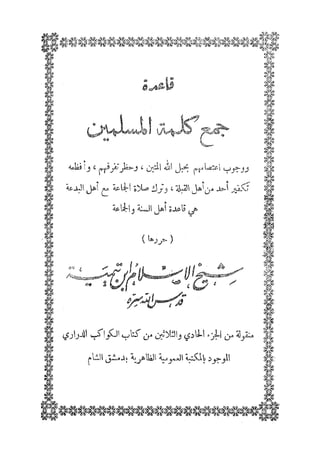 قاعدة
جمع كلمة المسلمين
ووجوب اعتصامهم بحبل الله المتين، وحظر تفرقهم، وأفظعه
تكفير أحد من أهل القبلة، وترك صلاة الجماعة مع أهل البدعة
هي قاعدة أهل السنة والجماعة
( حررها )
شيخ الإسلام ابن تيمية
قدس الله سره
منقولة من الجزء الحادي والثلاثين من كتاب الكواكب الدراري
الموجود بالمكتبة العمومية الظاهرية بدمشق الشام